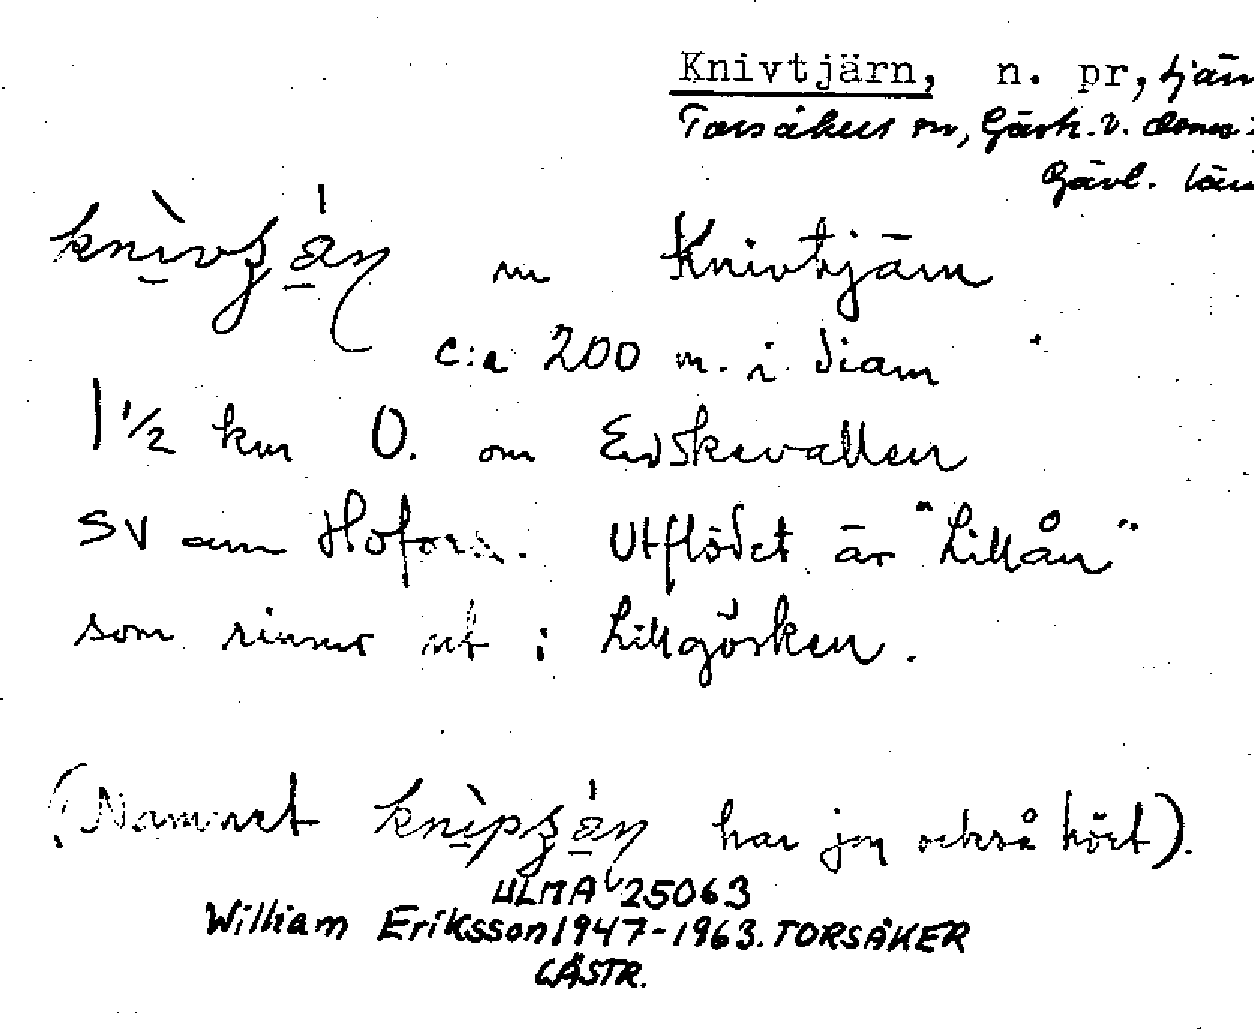 Knivtjärn, n. pr, tjärn
Torsåkers sn, Gästr. v. doms:
Gävl. län
m Knivtjärn
c:a 200 m. i diam
1 1/2 km O. om Edskevallen
SV om Hofors. Utflödet är "Lillån"
som rinner ut i Lillgösken.
(Namnet har jag också hört).
ULMA 25063
William Eriksson 1947-1963. TORSÅKER
GÄSTR.